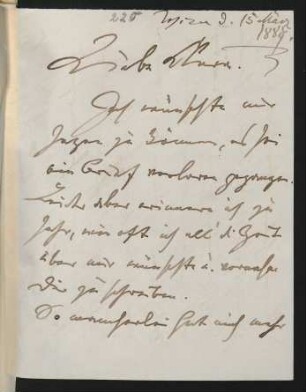 225 Wien d. 15 März
1889.
Liebe Clara.
Ich wünschte nur
sagen zu können, es sei
ein Brief verloren gegangen.
Leider aber erinnere ich zu
sehr, wie oft ich all' die Zeit
über mir wünschte u. vornahm
Dir zu schreiben.
So mancherlei hat mich mehr